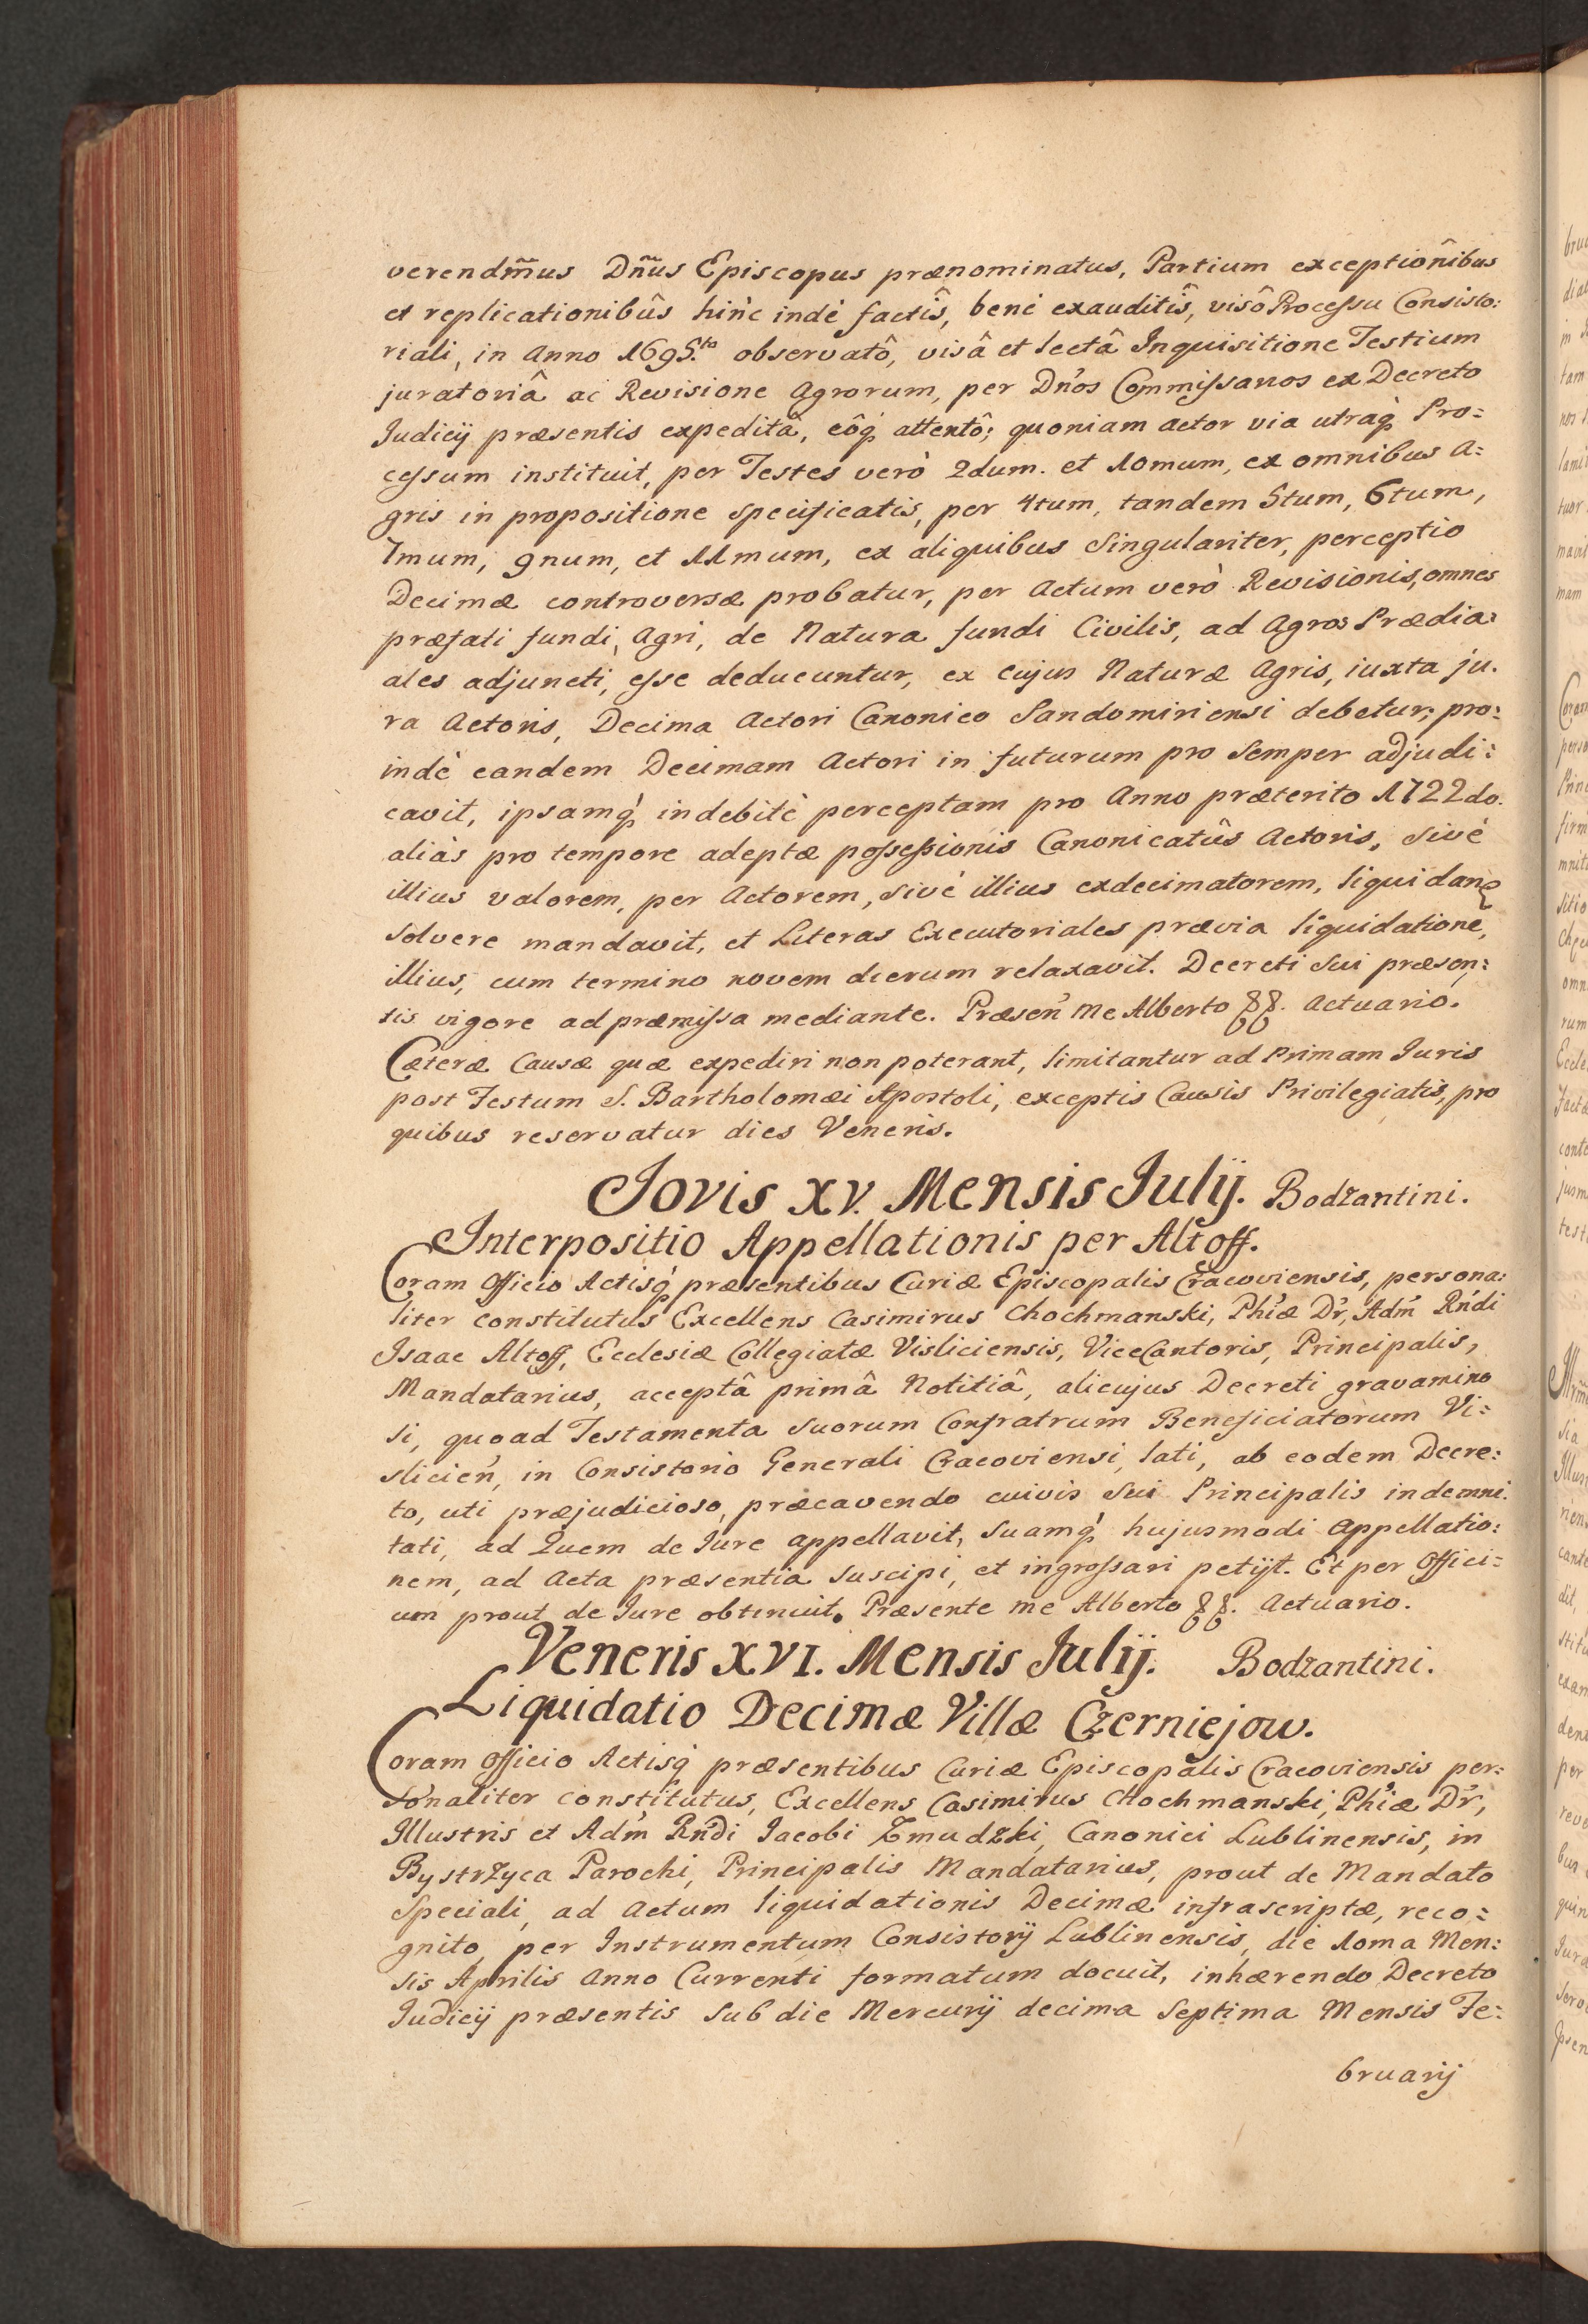 verendm̃us Dñus Episcopus prænominatus, Partium exceptionîbus
et replicationibûs hinc indè factîs, benè exauditîs, visô Processu Consisto:
riali, in Anno 1695.to observatô, visâ et lectâ Inquisitione Testium
juratoriâ ac Revisione Agrorum, per Dn̓os Commissarios ex Decreto
Iudicij præsentis expeditâ, eôq̀ attentô; quoniam Actor via utraq̀ Pro=
cessum instituit, per Testes verò 2dum. et 10mum, ex omnibus A=
gris in propositione specificatis, per 4tum, tandem 5tum, 6tum,
7mum, 9num, et 11mum, ex aliquibus singulariter, perceptio
Decimæ controversæ probatur, per Actum verò Revisionis, omnes
præfati fundi, Agri, de Natura fundi Civilis, ad Agros Prædia=
ales adjuncti, esse deducuntur, ex cujus Naturæ Agris, iuxta ju.
ra Actoris, Decima Actori Canonico Sandomiriensi debetur; pro:
indè eandem Decimam Actori in futurum pro semper adjudi:
cavit, ipsamq̀ indebitè perceptam pro Anno præterito 1722do.
aliàs pro tempore adeptæ possessionis Canonicatûs Actoris, sivè
illius valorem, per Actorem, sivè illius exdecimatorem, liquidan
solvere mandavit, et Literas Executoriales prævia liquidatione,
illius, cum termino novem dierum relaxavit. Decreti sui præsen:
tis vigore ad præmissa mediante. Præsen̓ me Alberto &&. Actuario.
Cæteræ Causæ quæ expediri non poterant, limitantur ad Primam Iuris
post Festum S. Bartholomæi Apostoli, exceptis Causis Privilegiatis, pro
quibus reservatur dies Veneris.
Jovis XV. Mensis Julij. Bodzantini.
Interpositio Appellationis per Altoff.
Coram Officio Actisq̀ præsentibus Curiæ Episcopalis Cracoviensis, persona:
liter constitutus Excellens Casimirus Chochmanski, Phiæ Dr, Adm̓ Rndi
Isaac Altoff, Ecclesiæ Collegiatæ Visliciensis, ViceCantoris, Principalis,
Mandatarius, acceptâ primâ Notitiâ, alicujus Decreti gravamino
si, quoad Testamenta suorum Confratrum Beneficiatorum Vi=
slicien̓, in Consistorio Generali Cracoviensi, lati, ab eodem Decre:
to, uti præjudicioso, præcavendo cuivis sui Principalis indemni.
tati, ad Quem de Iure appellavit, suamq̀ hujusmodi Appellatio:
nem, ad Acta præsentia suscipi, et ingrossari petijt. Et per Offici=
um prout de Iure obtinuit. Præsente me Alberto &&. Actuario.
Veneris XVI. Mensis Julij. Bodzantini.
Liquidatio Decimæ Villæ Czerniejow.
Coram Officio Actisq̀ præsentibus Curiæ Episcopalis Cracoviensis per=
sonaliter constitutus, Excellens Casimirus Chochmanski, Phiæ Dr,
Illustris et Adm̓ Rndi Iacobi Żmudzki, Canonici Lublinensis, in
Bystrzyca Parochi, Principalis Mandatarius, prout de Mandato
Speciali, ad Actum liquidationis Decimæ infrascriptæ, reco=
gnito, per Instrumentum Consistorij Lublinensis, die 10ma Men:
sis Aprilis Anno Currenti formatum docuit, inhærendo Decreto
Iudicij præsentis sub die Mercurij decima septima Mensis Fe=
bruarij